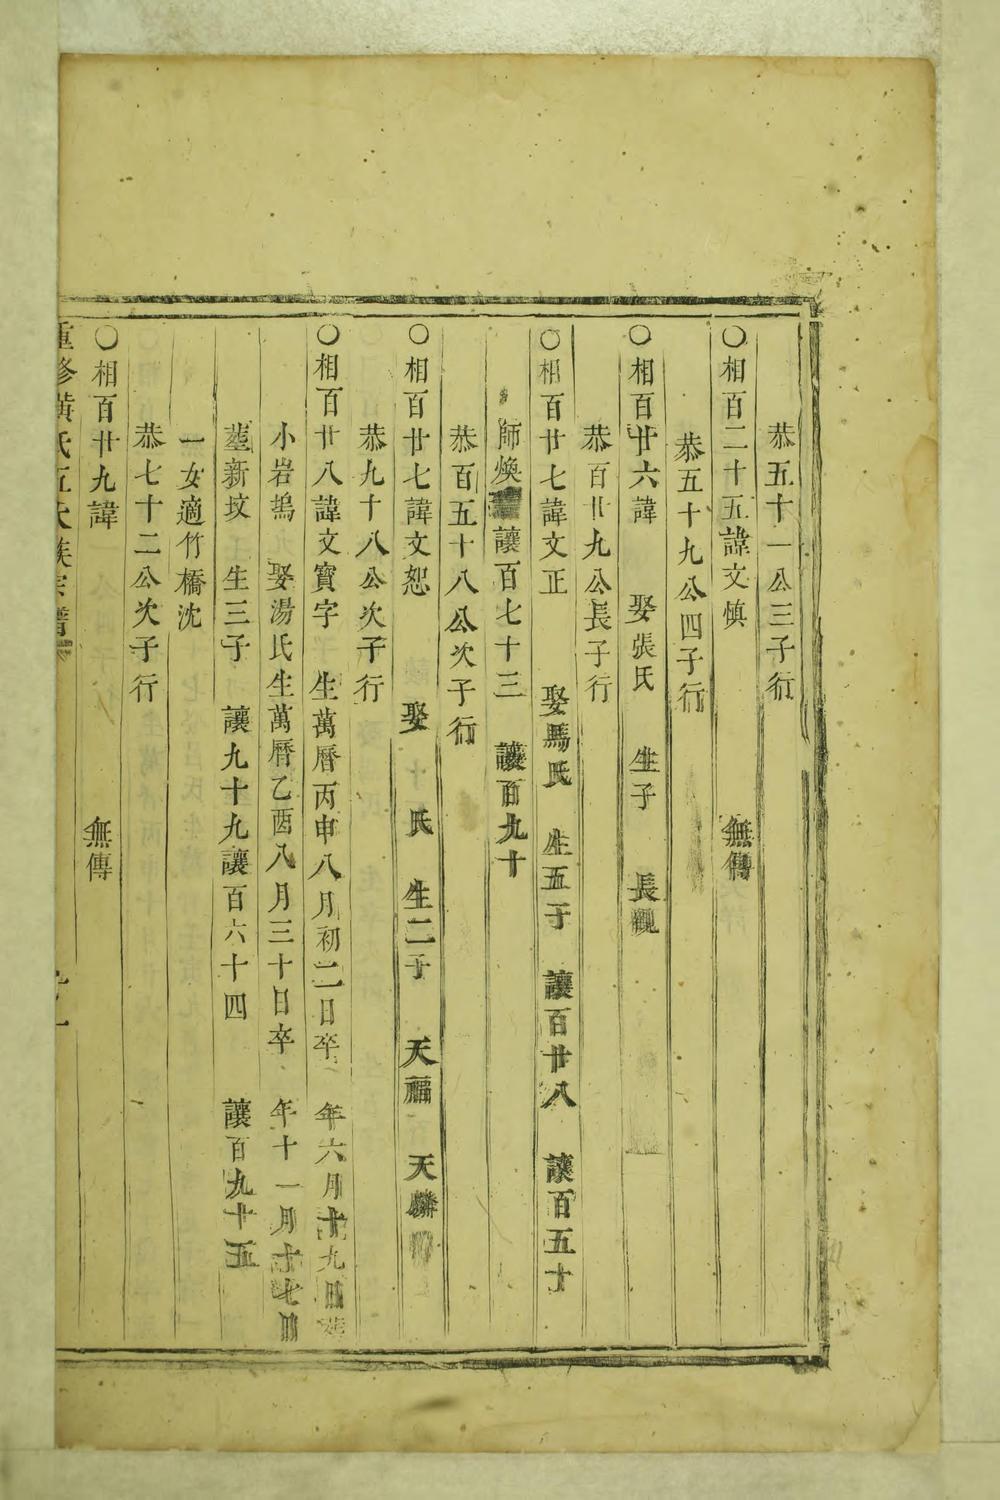 恭五十一公三子行
〇相百二十五諱文慎 無傳
恭五十九公四子行
〇相百廿六諱 娶張氏 生子 長觀
恭百廿九公長子行
〇相百廿七諱文正 娶馬氏 生五子 讓百廿八 讓百五十
師煥 讓百七十三 讓百九十
恭百五十八公次子行
〇相百廿七諱文恕 娶 氏 生二子 天福 天麟
恭九十八公次子行
〇相百廿八諱文寶字 生萬曆丙申八月初二日卒 年六月十九日葬
小岩塢 娶湯氏生萬曆乙酉八月三十日卒 年十一月十七日
塟新坟 生三子 讓九十九讓百六十四 讓百九十五
一女適竹橋沈
恭七十二公次子行
〇相百廿九諱 無傳
重修黃氏五大族宗譜